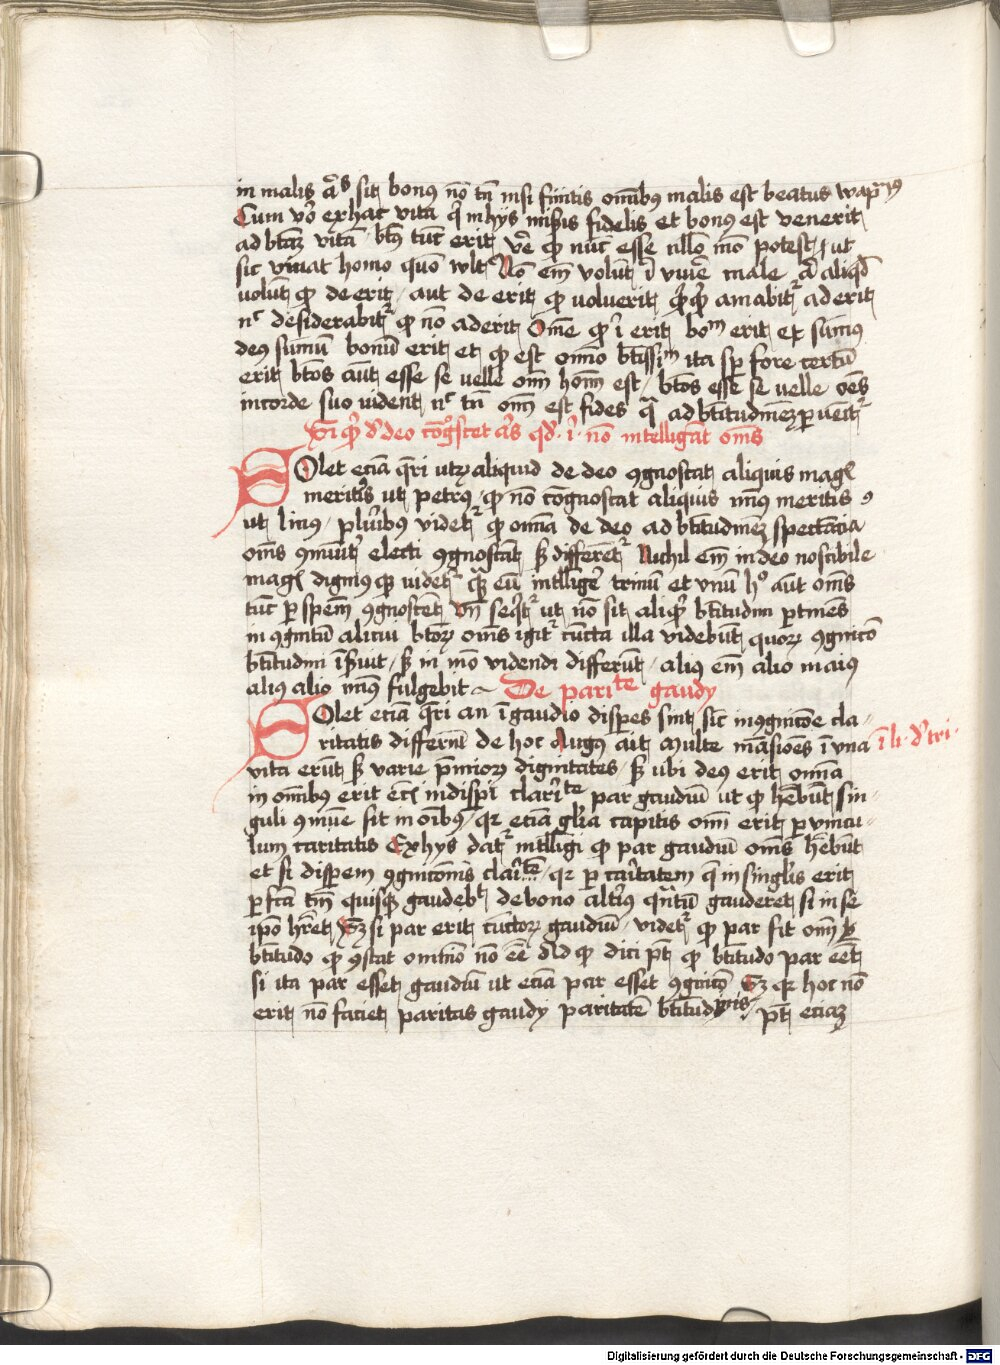 in malis aͣs sit bonꝯ nō tn̄ nisi finitis om̄ibꝯ malis est beatus
Cum v̉o ex hac vita q̉ in hys mis̉is fidelis et bonꝯ est venerit
ad btaꝫ vitā / bt9 tūc erit v̉e qd nūc esse nllō mō potest / ut
sic vivat homo quō wlt Nō em̄ volūt ī viv̉e male a aliqd
volūt qd de erit / aut de erit qd voluerit q̉cqd amabit̉ aderit
nͨ desiderabit̉ qd nō aderit Om̄e qd ī erit boᵐ erit et sūmꝯ
deꝯ sūmū bonū erit et qd est om̄io btissīᵐ ita sp̄ fore certū
erit btos aūt esse se velle om̄ hoīm est / btos esse se velle oēs
in corde suo vident nͨ tn̄ om̄ est fides q̄ ad btitudīneꝫ p̱uenit̉
de deo cōgͦscet nō intelligāt om̄s
Solet eciā q̄ri utꝝ aliquid de deo ꝯgnoscat aliquis magꝭ
meritis ut petrꝯ / qd nō cōgnoscat aliquis mīꝯ meritis ꝯ
ut linꝯ / pluribꝯ videt̉ qd om̄ia de deo ad btitudīneꝫ spectācia
om̄s ꝯmuit̉ electi ꝯgnoscāt sꝫ differēt̉ Nichil em̄ in deo noscibile
magꝭ dignꝯ qd videt̉ q̄ꝫ eū intllig̉e trinū et vnū hͦ aūt om̄s
tūc p̱ spēm ꝯgnoscēt vn̄ seqt̉ ut nō sit aliqd btitudīni p̱tinēs
in ꝯgnitū alicui btoꝝ om̄s igit̉ cūcta illa videbūt quoꝝ ꝯgnicō
btitudīni īs̉uit / sꝫ in mō videndi differūt / aliꝯ em̄ alio maiꝯ
aliꝯ alio mīꝯ fulgebit De pariᵗᵉ gaudy
Solet eciā q̄ri an ī gaudio disp̱es sint sic in ꝯgnicōe cla-
ritatis differūt de hoc Augꝯ ait Multe māsiōes ī vna ī li d̉ tri
vita erūt sꝫ varie p̄mioꝝ dignitates / sꝫ ubi deꝯ erit om̄ia
in om̄ibꝯ erit eciā in disp̱i clariᵗᵉ par gaudiū ut qd hēbūt sin-
guli ꝯmūe sit in oībꝯ / qꝛ eciā glīa capitis om̄ erit p̱ vincu-
lum caritatis Ex hys dat̉ intlligi qd par gaudiū om̄s hēbūt
et si disp̱em ꝯgnicōnis / qꝛ p̱ caritatem q̄ in singl̉is erit
p̱fcā tm̄ quisqꝫ gaudebᵗ de bono alt̉iꝯ q̄ntū gauderet si in se
ipō hr̄et Sꝫ si par erit cūctoꝝ gaudiū / videt̉ qd par sit om̄
btitudo qd ꝯstat om̄īno nō eē Ad qd dici pt̄ qd btitudo par eēt
si ita par esset gaudiū ut eciā par esset ꝯgnicō Sꝫ qꝛ hoc nō
erit nō faciet paritas gaudy paritatē btitudīnis / pt̄ eciaꝫ
Digitalisierung gefördert durch die Deutsche Forschungsgemeinschaft - DFG